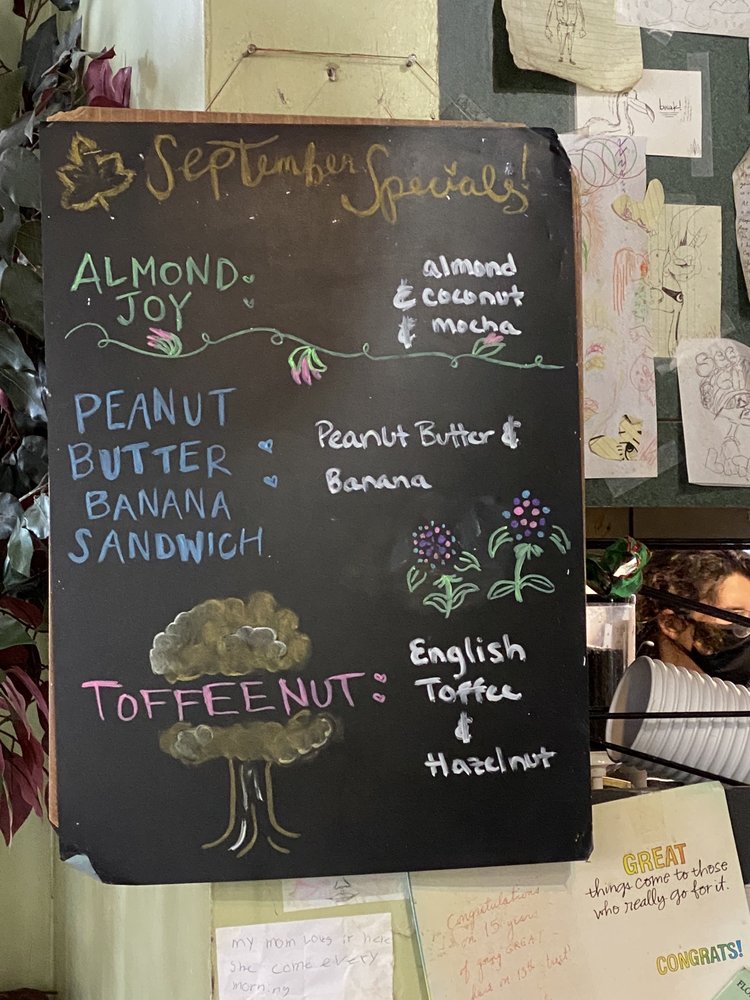 September Specials!
ALMOND
JOY :
almond
& coconut
& mocha
PEANUT
BUTTER :
BANANA
SANDWICH
Peanut Butter &
Banana
TOFFEENUT :
English
Toffee
&
Hazelnut
GREAT
things come to those
who really go for it.
CONGRATS!
my mom Loves it here
She come every
morning
Congratulations
on 15 years